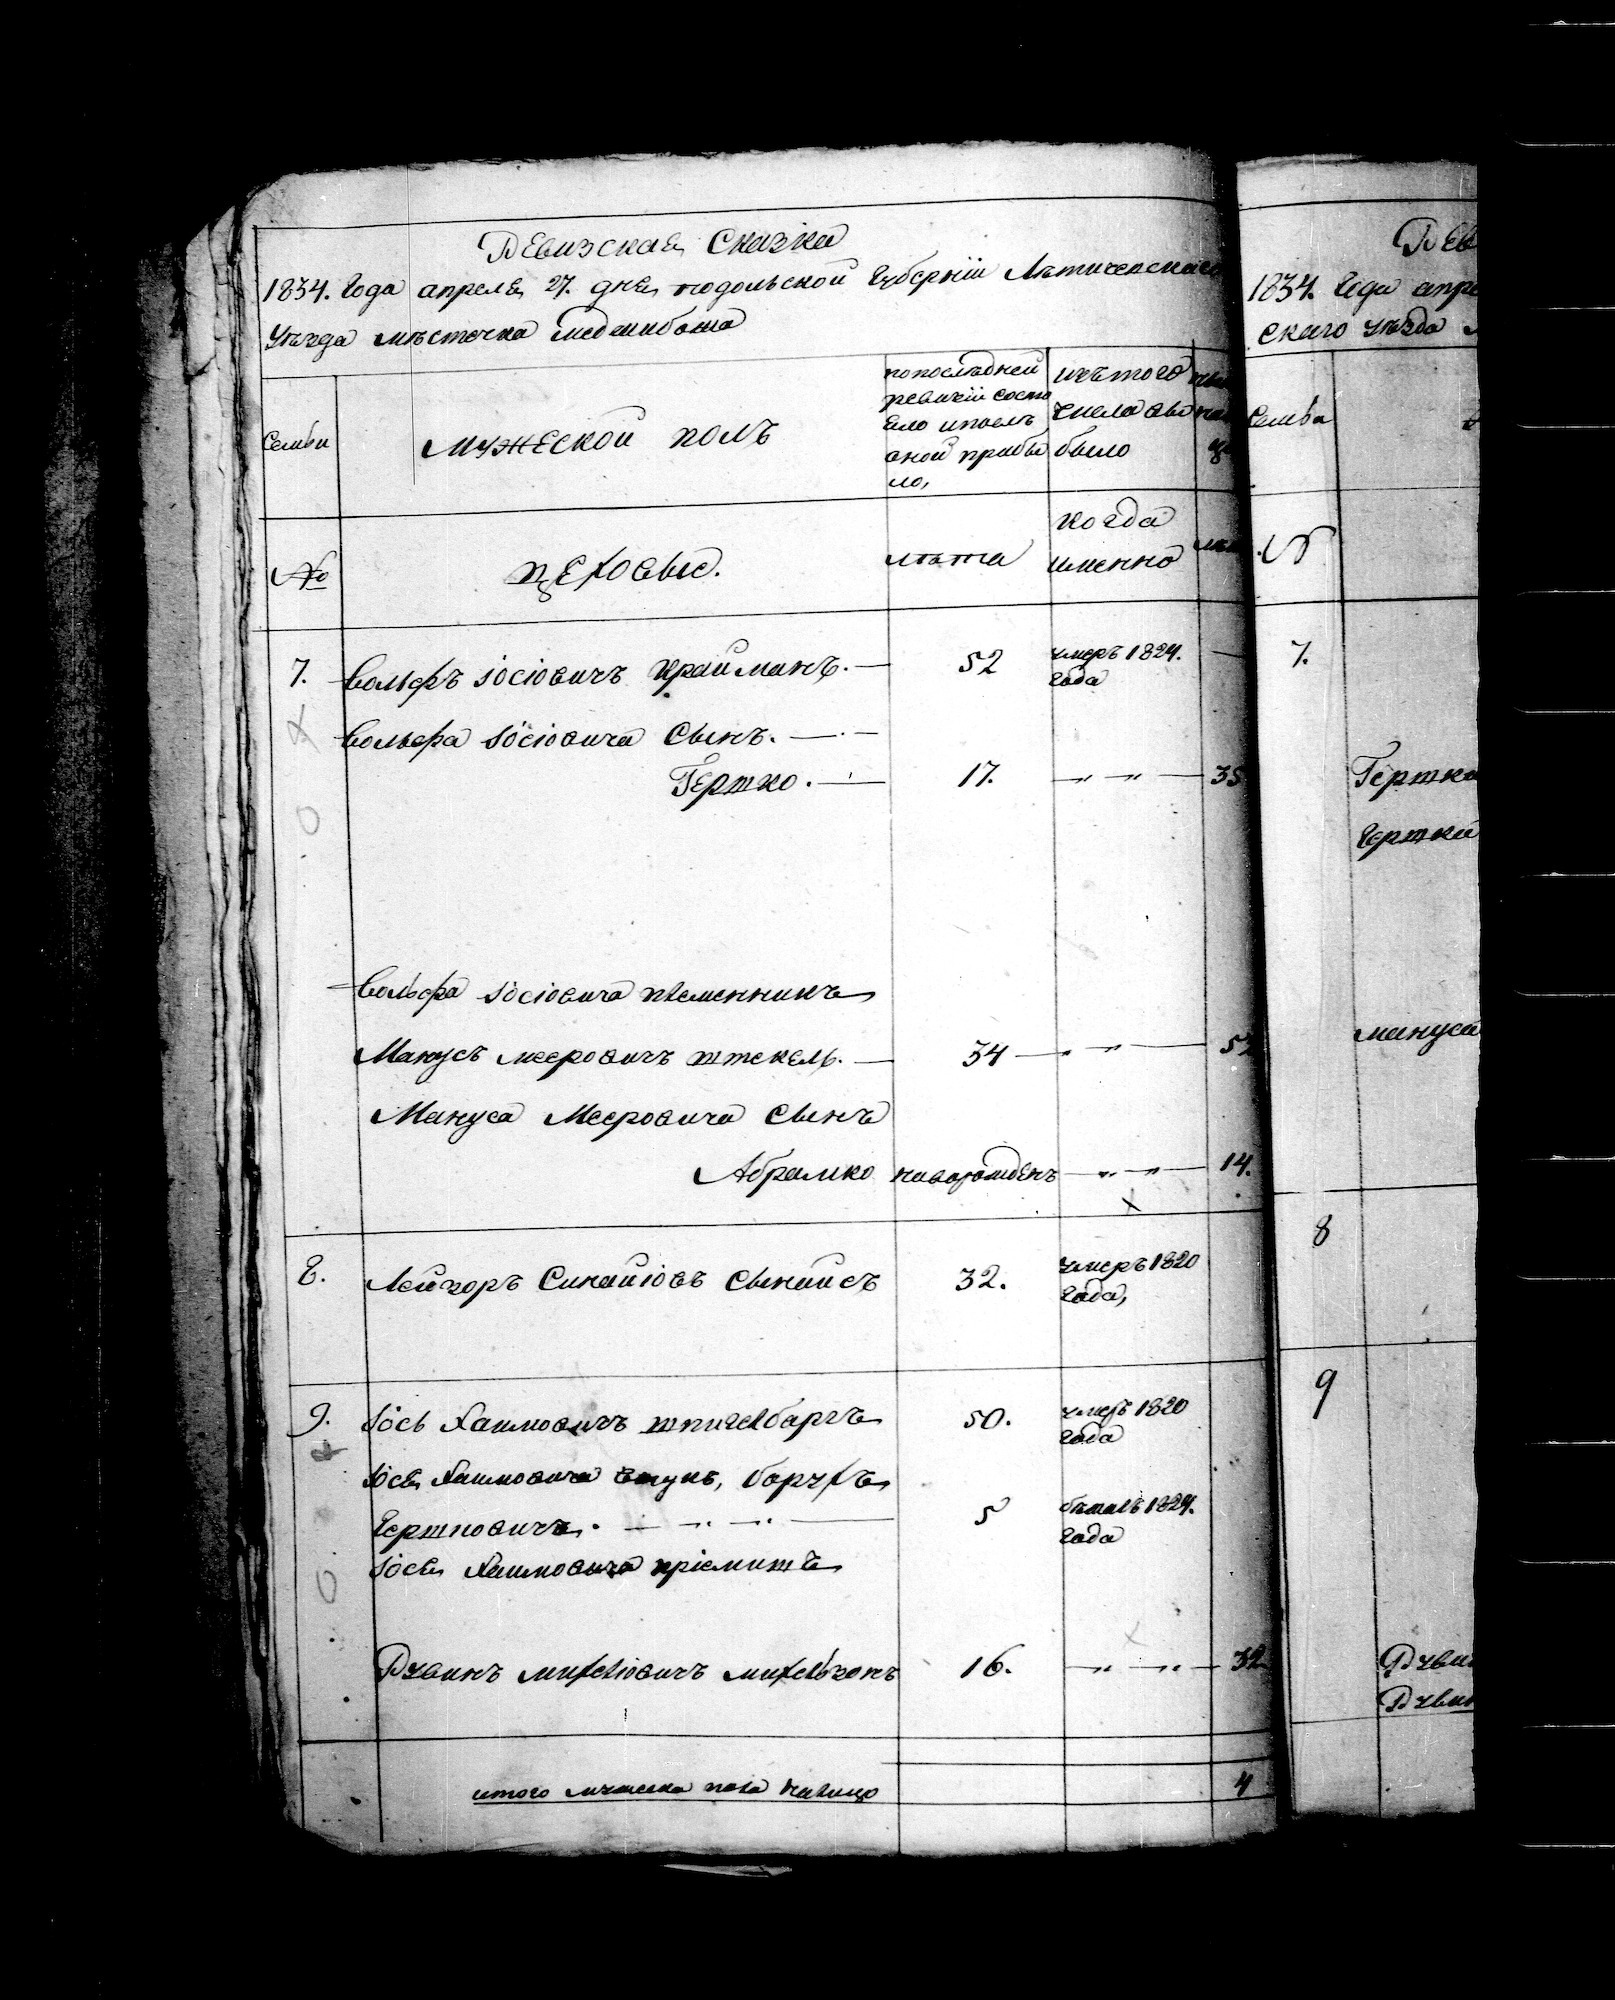 Ревизская Сказка
1834. Года апреля 27. дня подольской Губернїи Лѣтичевскаго
Уѣзда мѣстечка Меджибожа
Семьи
Мужеской полъ
попослѣдней
ревизїи состо
яло ипослѣ
оной прибы
ло,
изътого
числа вы
было
№
цеховые.
лѣта
когда
именно
7.
Вольфъ Іосїовичъ Крайманъ.
52
умеръ 1824.
года
Вольфа Іосїовича Сынъ.
Гершко.
17.
35
Вольфа Іосїовича племенникъ
Манусъ Мееровичъ штекель.
34
Мануса Мееровича Сынъ
Абрамко новорожденъ
14.
8.
Лейзоръ Синайїовъ
32.
умеръ 1820
года,
9.
Іось Хаимовичъ шпигелбаргъ
50.
умеръ 1820
года
Іося Хаимовича внукъ, борухъ
Гершковичъ.
5
1824.
года
Іося Хаимовича прїемишъ
Рувинъ михелїовичъ михельзонъ
16.
32
итого мужеска пола налицо
4
Рев
1834. Года апре
скаго уѣзда м
Семьи
№
7.
Гершка
Гершки
мануса
8
9
Руви
Рувин